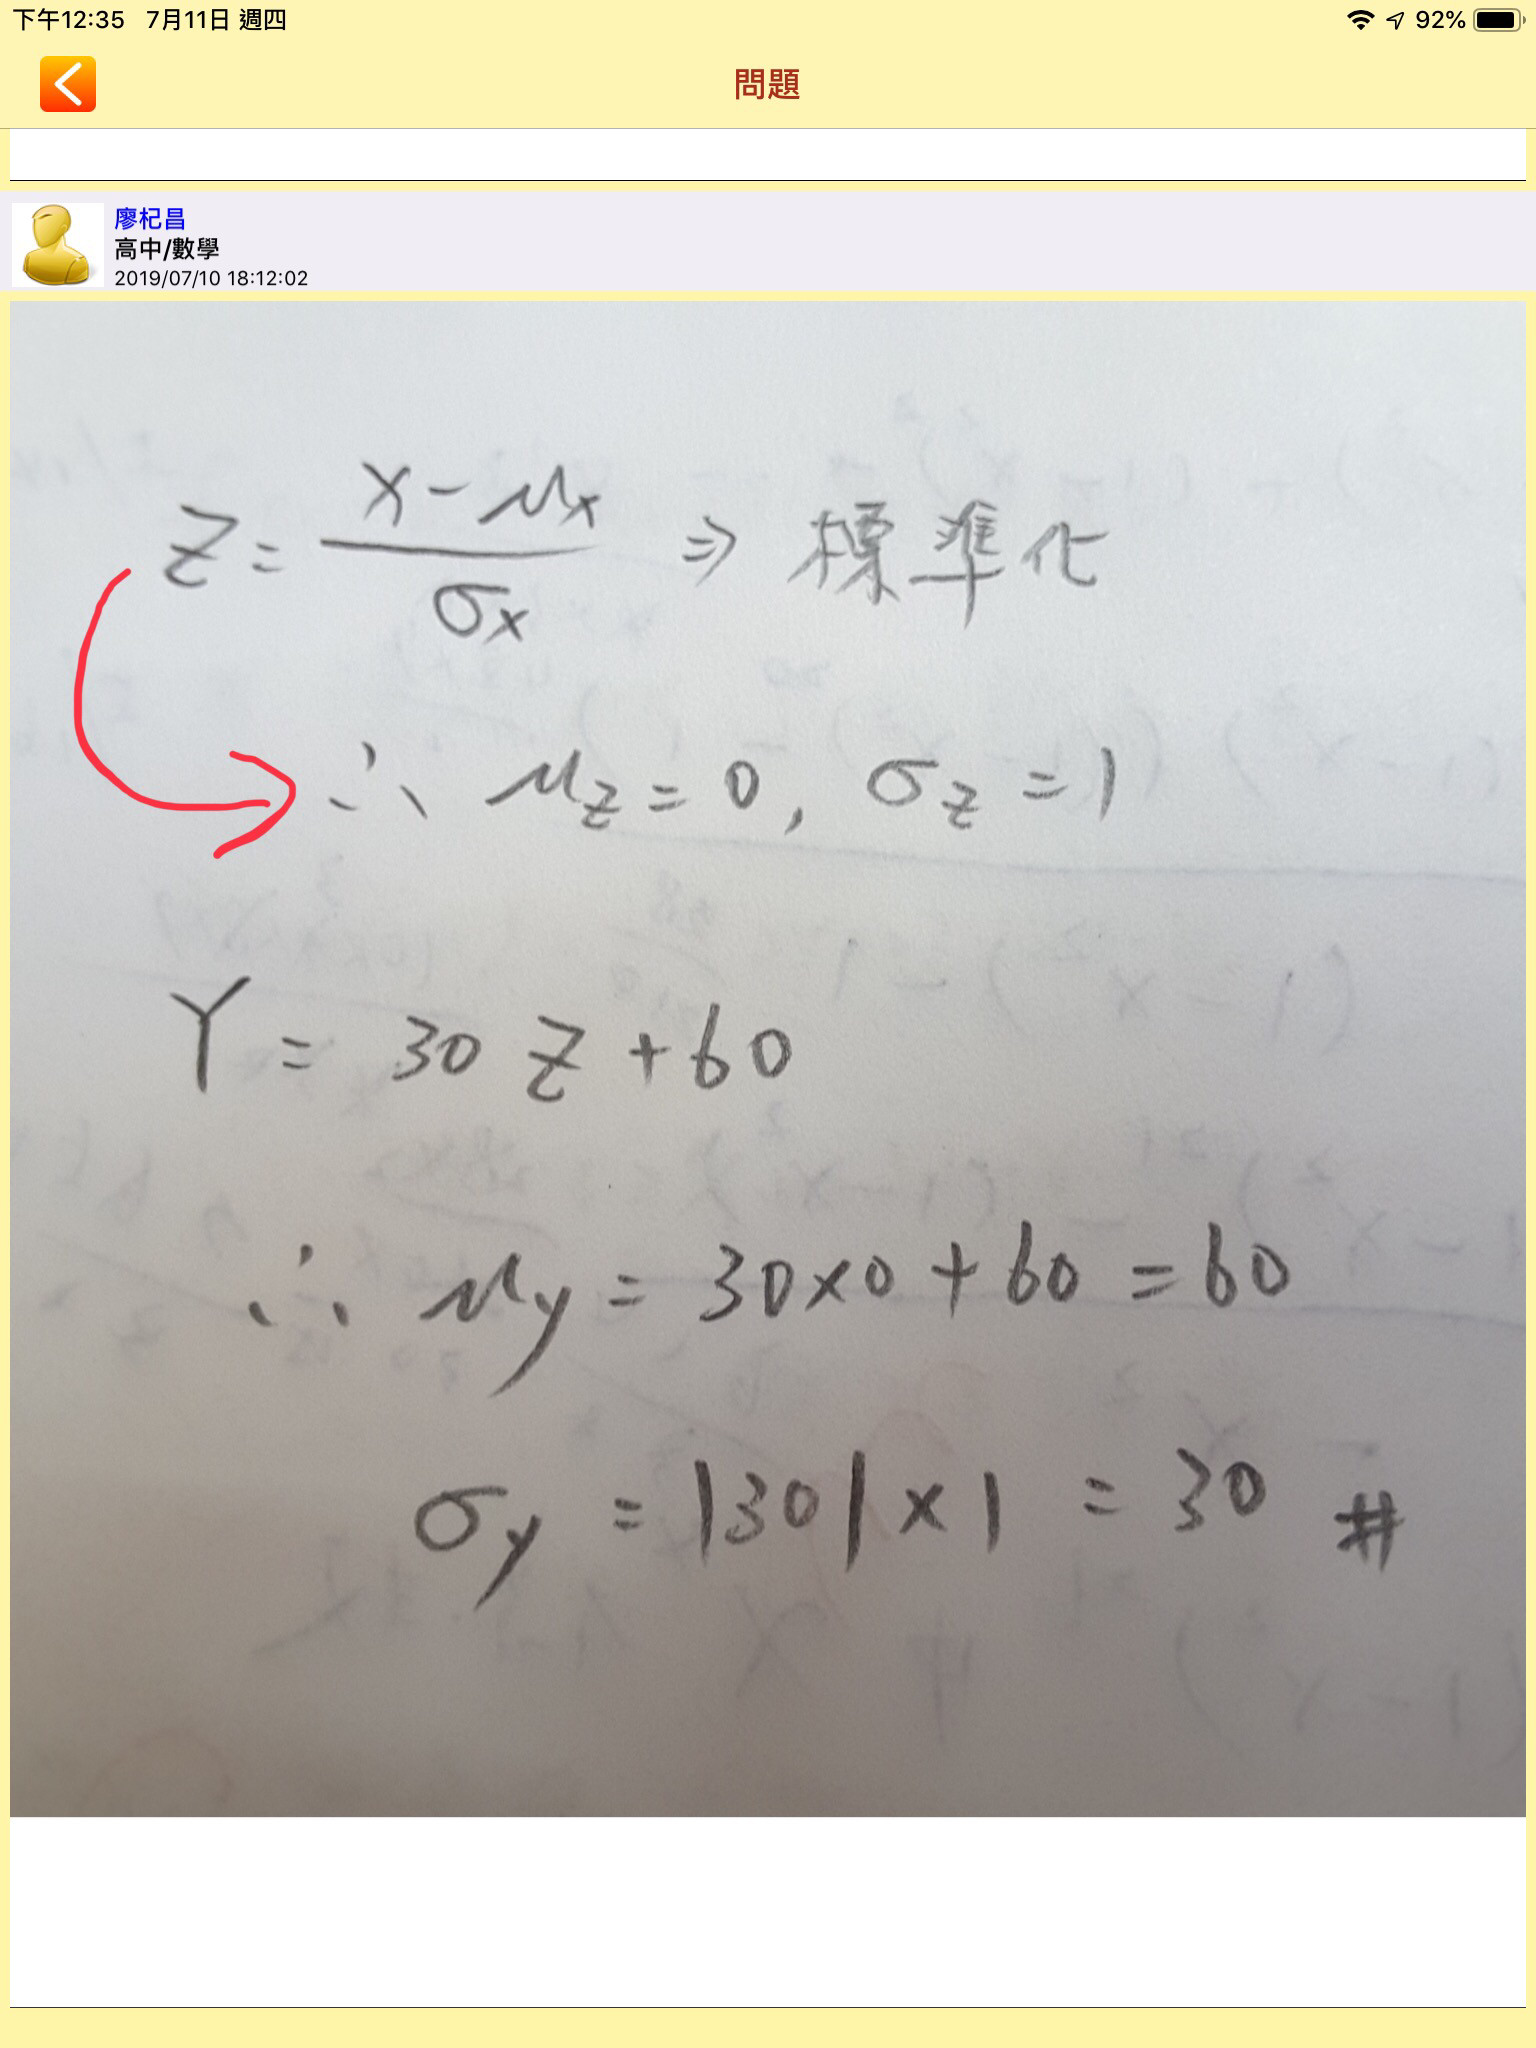 下午12:35 7月11日 週四 92%
問題
廖杞昌
高中/數學
2019/07/10 18:12:02
Z = (x - μx) / σx ⇒ 標準化
∴ μz = 0, σz = 1
Y = 30 Z + 60
∴ μy = 30×0 + 60 = 60
σy = |30| × 1 = 30 #